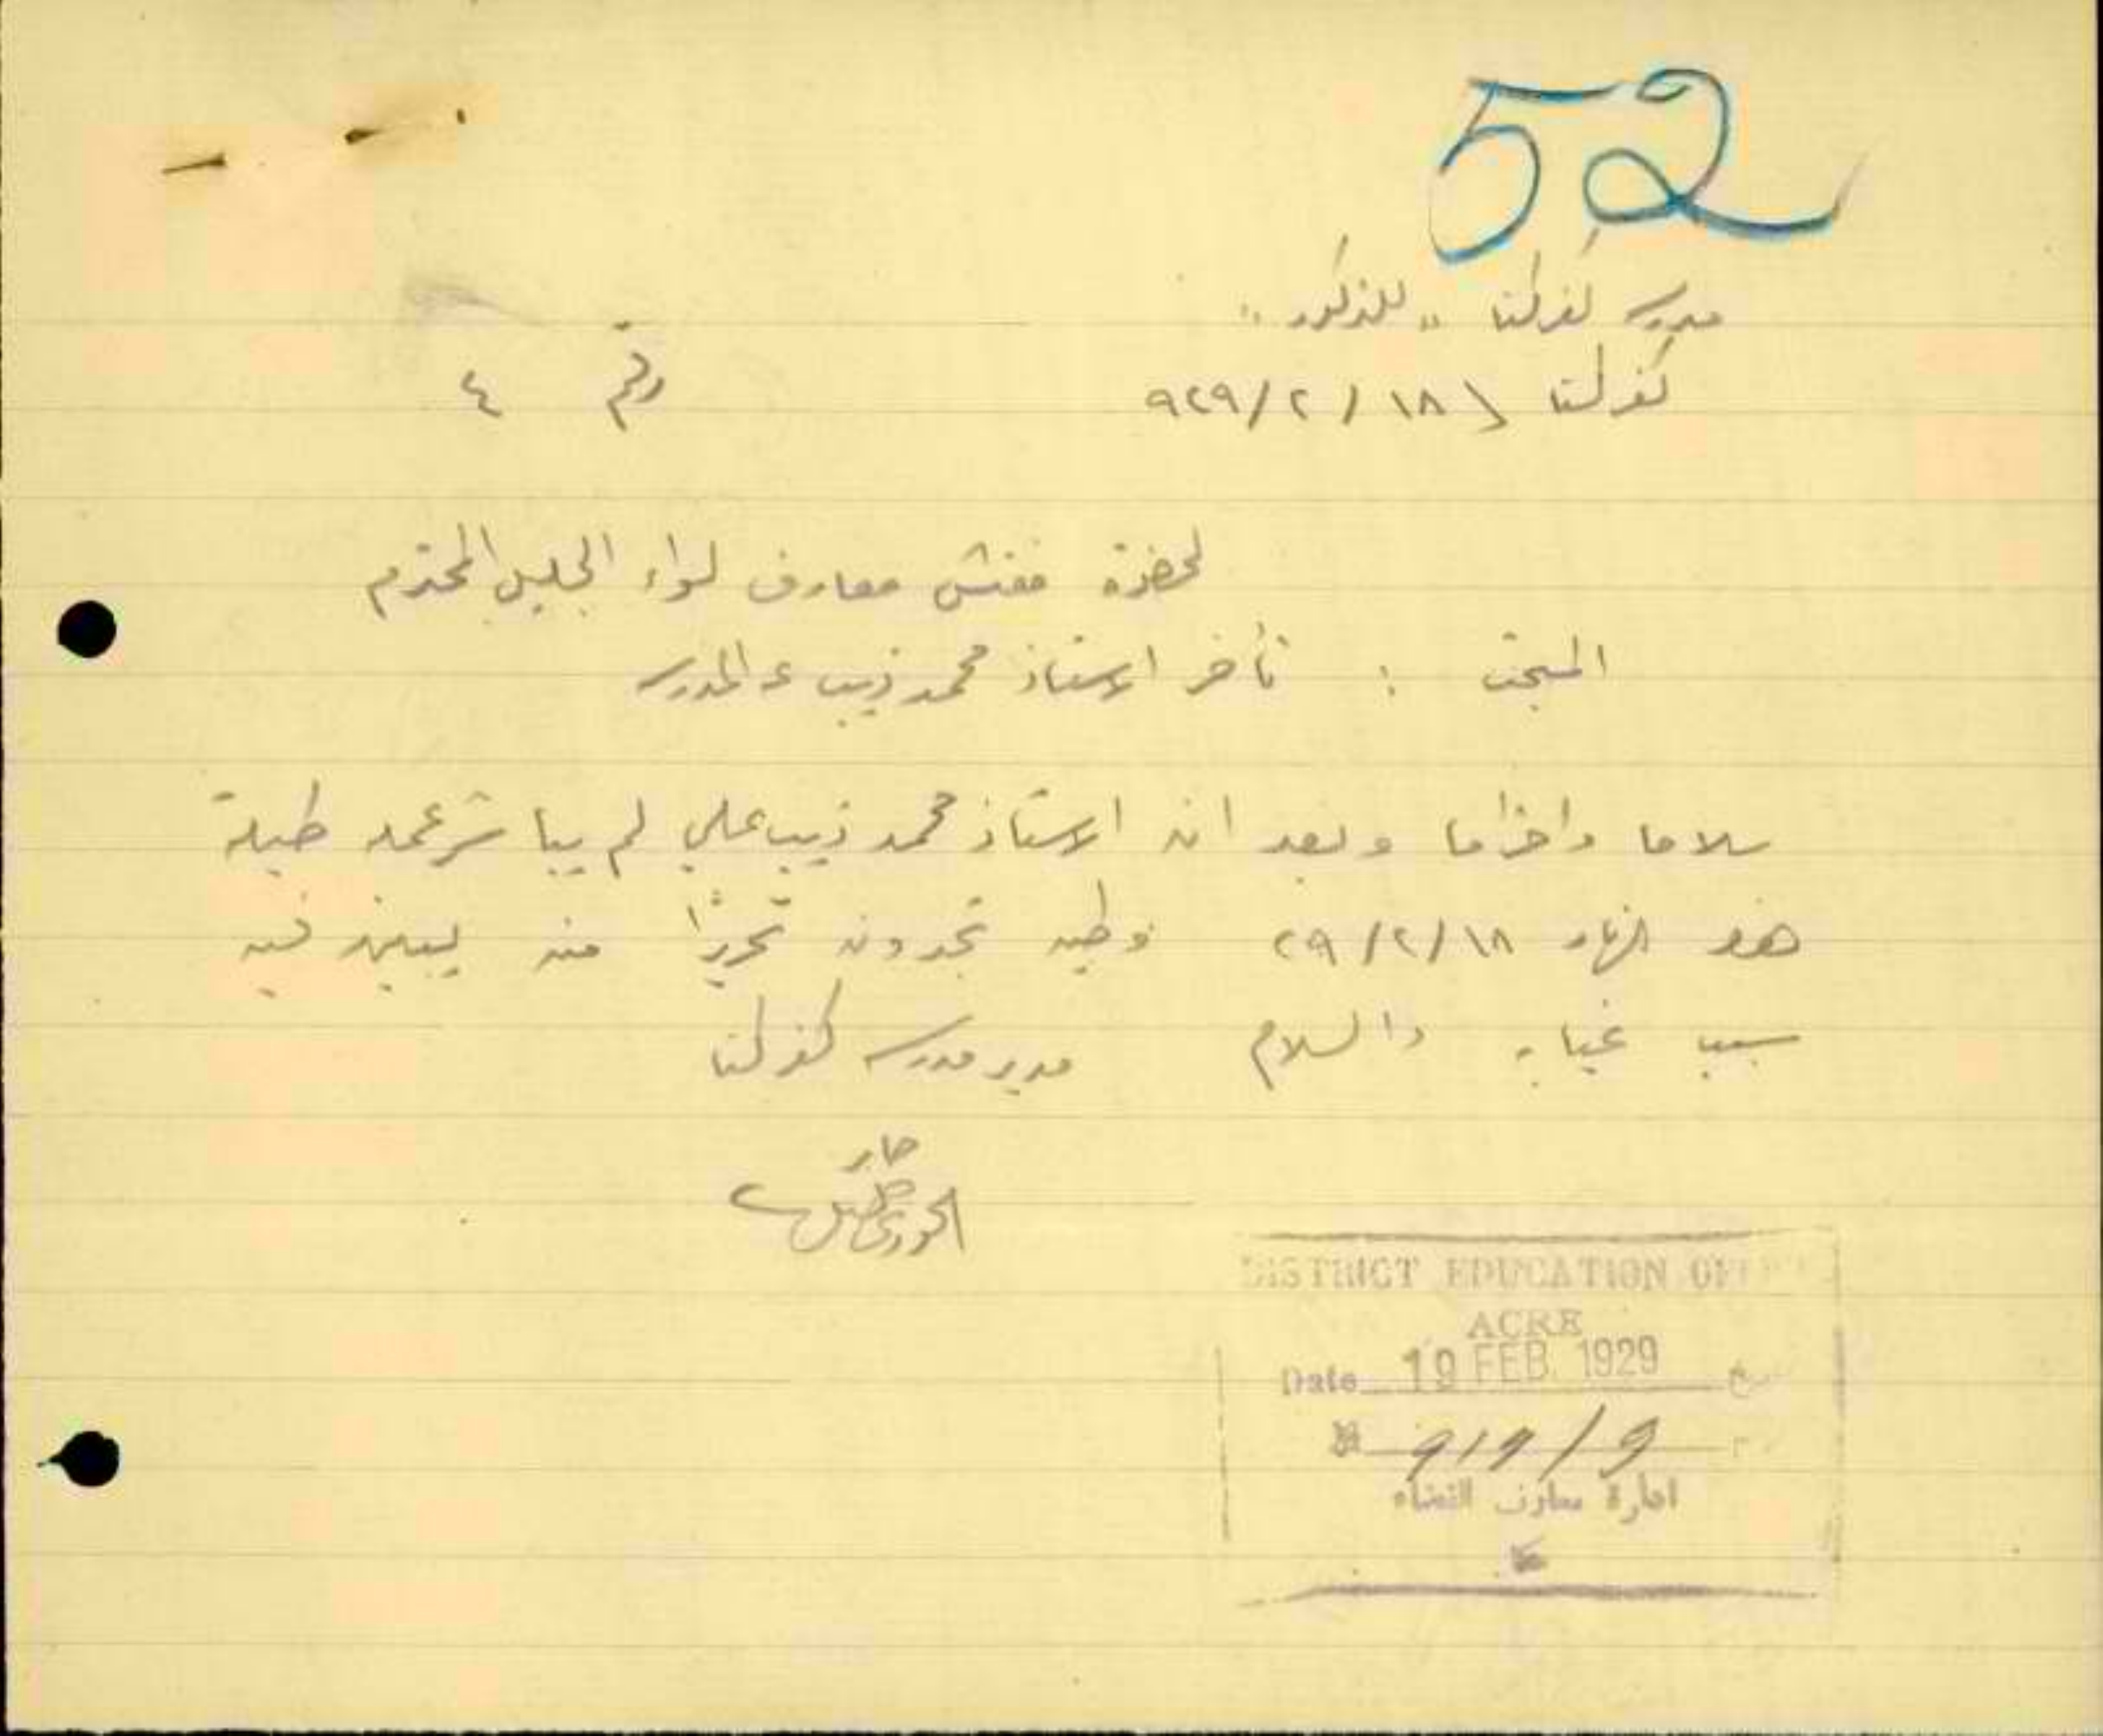 52
مدرسة كفركنا "للذكور"
كفركنا ١٨/٢/٩٢٩ رقم ٤
لحضرة مفتش معارف لواء الجليل المحترم
المبحث : تأخر الاستاذ محمد ذيب عن المدرسه
سلاما واحتراما وبعد ان الاستاذ محمد ذيب علي لم يباشر عمله طيلة
هذا النهار ١٨/٢/٢٩ وطيه تجدون تحريرًا منه يبين فيه
سبب غيابه والسلام مدير مدرسة كفركنا
الخوري
DISTRICT EDUCATION OFFICE
ACRE
Date 19 FEB. 1929
919/9
ادارة معارف القضاء
عكا